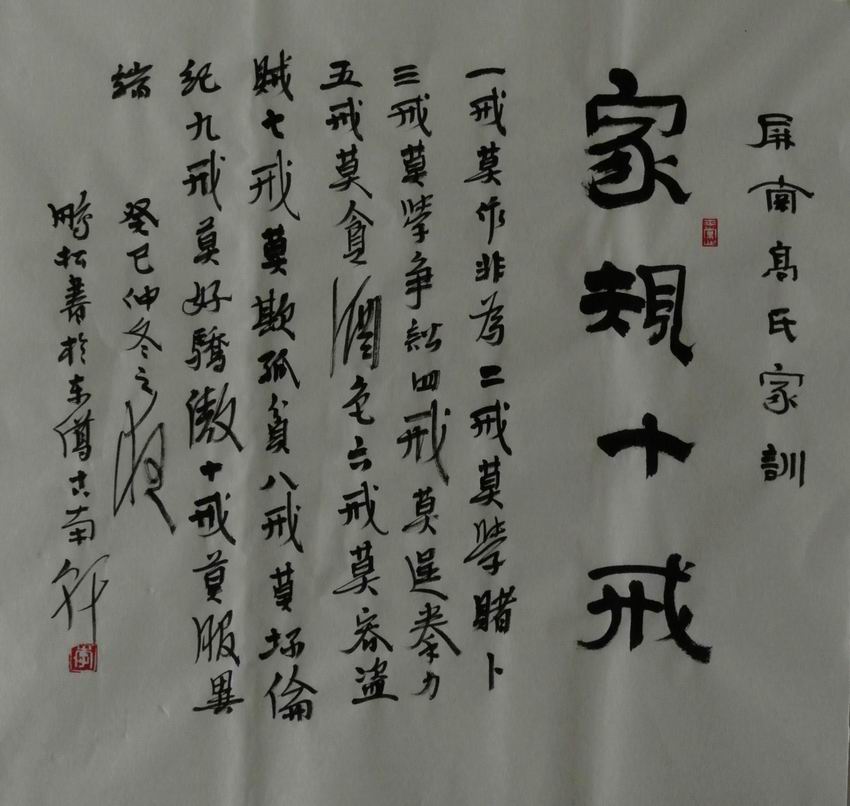 屏南髙氏家訓
家規十戒
一戒莫作非為二戒莫學賭卜
三戒莫學爭訟四戒莫逞拳力
五戒莫貪酒色六戒莫容盗
賊七戒莫欺孤貧八戒莫壞倫
紀九戒莫好驕傲十戒莫服異
端
癸巳仲冬之夜
鵬松書於东僑古南軒